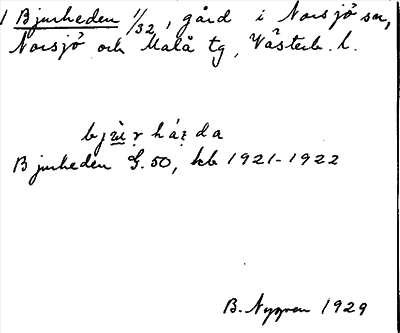 1 Bjurheden 1/32, gård i Norsjö sn,
Norsjö och Malå tg, Västerb. l.
bjùr̥ háṛda
Bjurheden G. 50, kb 1921-1922
B. Nygren 1929